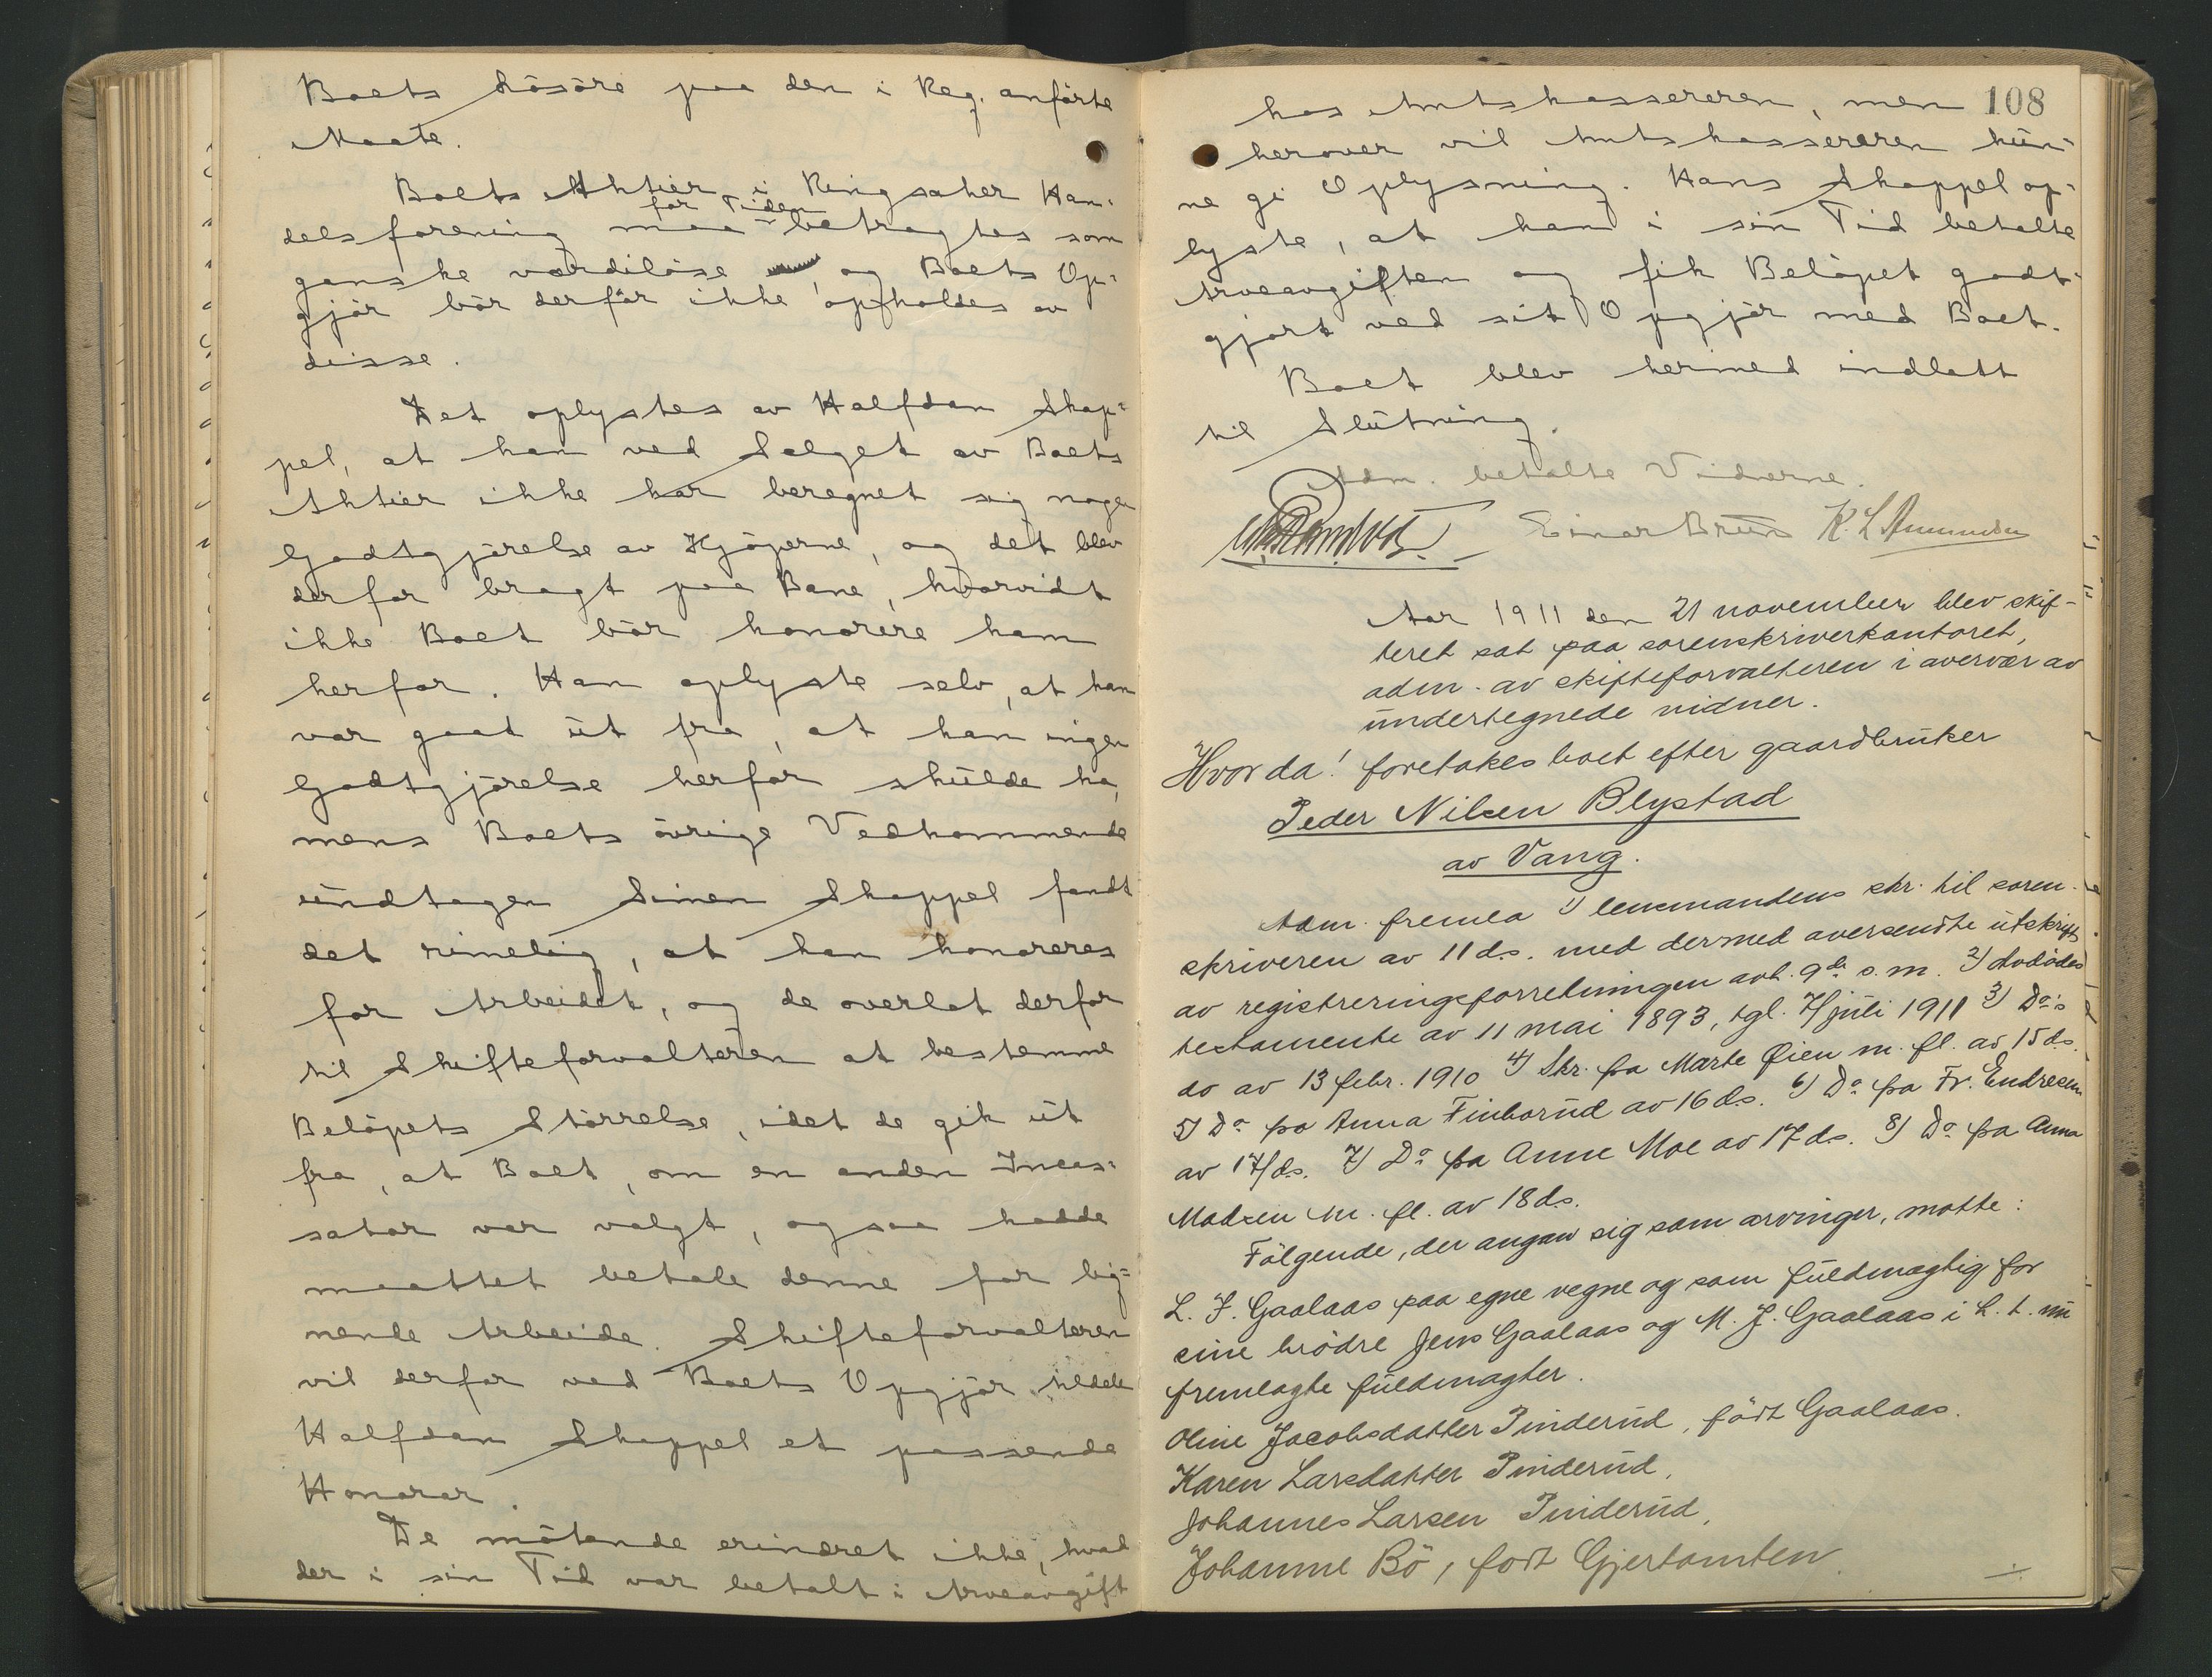 Boets Lösöre paa den i Reg. anförte
Maate.
Boets Aktier i Ringsaker Han-
delsforening maa for Tiden betragtes som
ganske værdilöse, og Boets Op-
gjör bör derfor ikke opholdes av
disse.
Det oplystes av Halfdan Skap-
pel, at han ved Salget av Boets
Aktier ikke har beregnet sig nogen
Godtgjörelse av Kjöperne, og det blev
derfor bragt paa Bane, hvorvidt
ikke Boet bör honorere ham
herfor. Han oplyste selv, at han
var gaat ut fra, at han ingen
Godtgjörelse herfor skulde ha,
mens Boets övrige Vedkommende
undtagen Simen Skappel fandt
det rimelig, at han honoreres
for Arbeidet, og de overlot derfor
til Skifteforvalteren at bestemme
Belöpets Störrelse, idet de gik ut
fra, at Boet, om en anden Incas-
sator var valgt, ogsaa hadde
maattet betale denne for lig-
nende Arbeide. Skifteforvalteren
vil derfor ved Boets Opgjör tildele
Halfdan Skappel et passende
Honorar.
De mötende erindret ikke, hvad
der i sin Tid var betalt i Arveavgift
108
hos Amtskassereren, men
herover vil Amtskassereren kun-
ne gi Oplysning. Hans Skappel op-
lyste, at han i sin Tid betalte
Arveavgiften og fik Belöpet godt-
gjort ved sit Opgjör med Boet.
Boet blev hermed indlatt
til Slutning.
Adm. betalte Vidnerne.
Einar Bruun K. L. Amundsen
Aar 1911 den 21 november blev skif-
teret sat paa sorenskriverkontoret,
adm. av skifteforvalteren i overvær av
undertegnede vidner.
Hvor da! foretokes boet efter gaardbruker
Peder Nilsen Blystad
av Vang.
Adm. fremla 1) lensmandens skr. til soren-
skriveren av 11 ds. med dermed oversendte utskrift
av registreringsforretningen avh. 9de s. m. 2) Avdödes
testamente av 11 mai 1893, tgl. 7/ juli 1911 3) Do's
do av 13 febr. 1910 4) Skr. fra Marte Øien m. fl. av 15 ds.
5) Do fra Anna Finborud av 16 ds. 6) Do fra Fr. Endresen
av 17/ds. 7) Do fra Anne Moe av 17 ds. 8) Do fra Anna
Madsen m. fl. av 18 ds.
Fölgende, der angav sig som arvinger, mötte:
L. J. Gaalaas paa egne vegne og som fuldmagtig for
sine brödre Jens Gaalaas og M. J. Gaalaas i h. t. nu
fremlagte fuldmagter.
Oline Jacobsdatter Pinderud, född Gaalaas.
Karen Larsdatter Pinderud,
Johannes Larsen Pinderud,
Johanne Bö, födt Gjertomten.